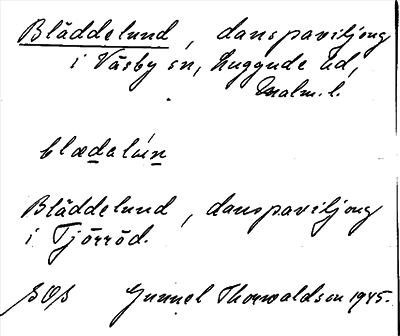 Bläddelund, danspaviljong
i Väsby sn, Luggude hd,
Malm. l.
blædalún
Bläddelund, danspaviljong
i Tjörröd.
SOS Gunnel Thorwaldson 1945.